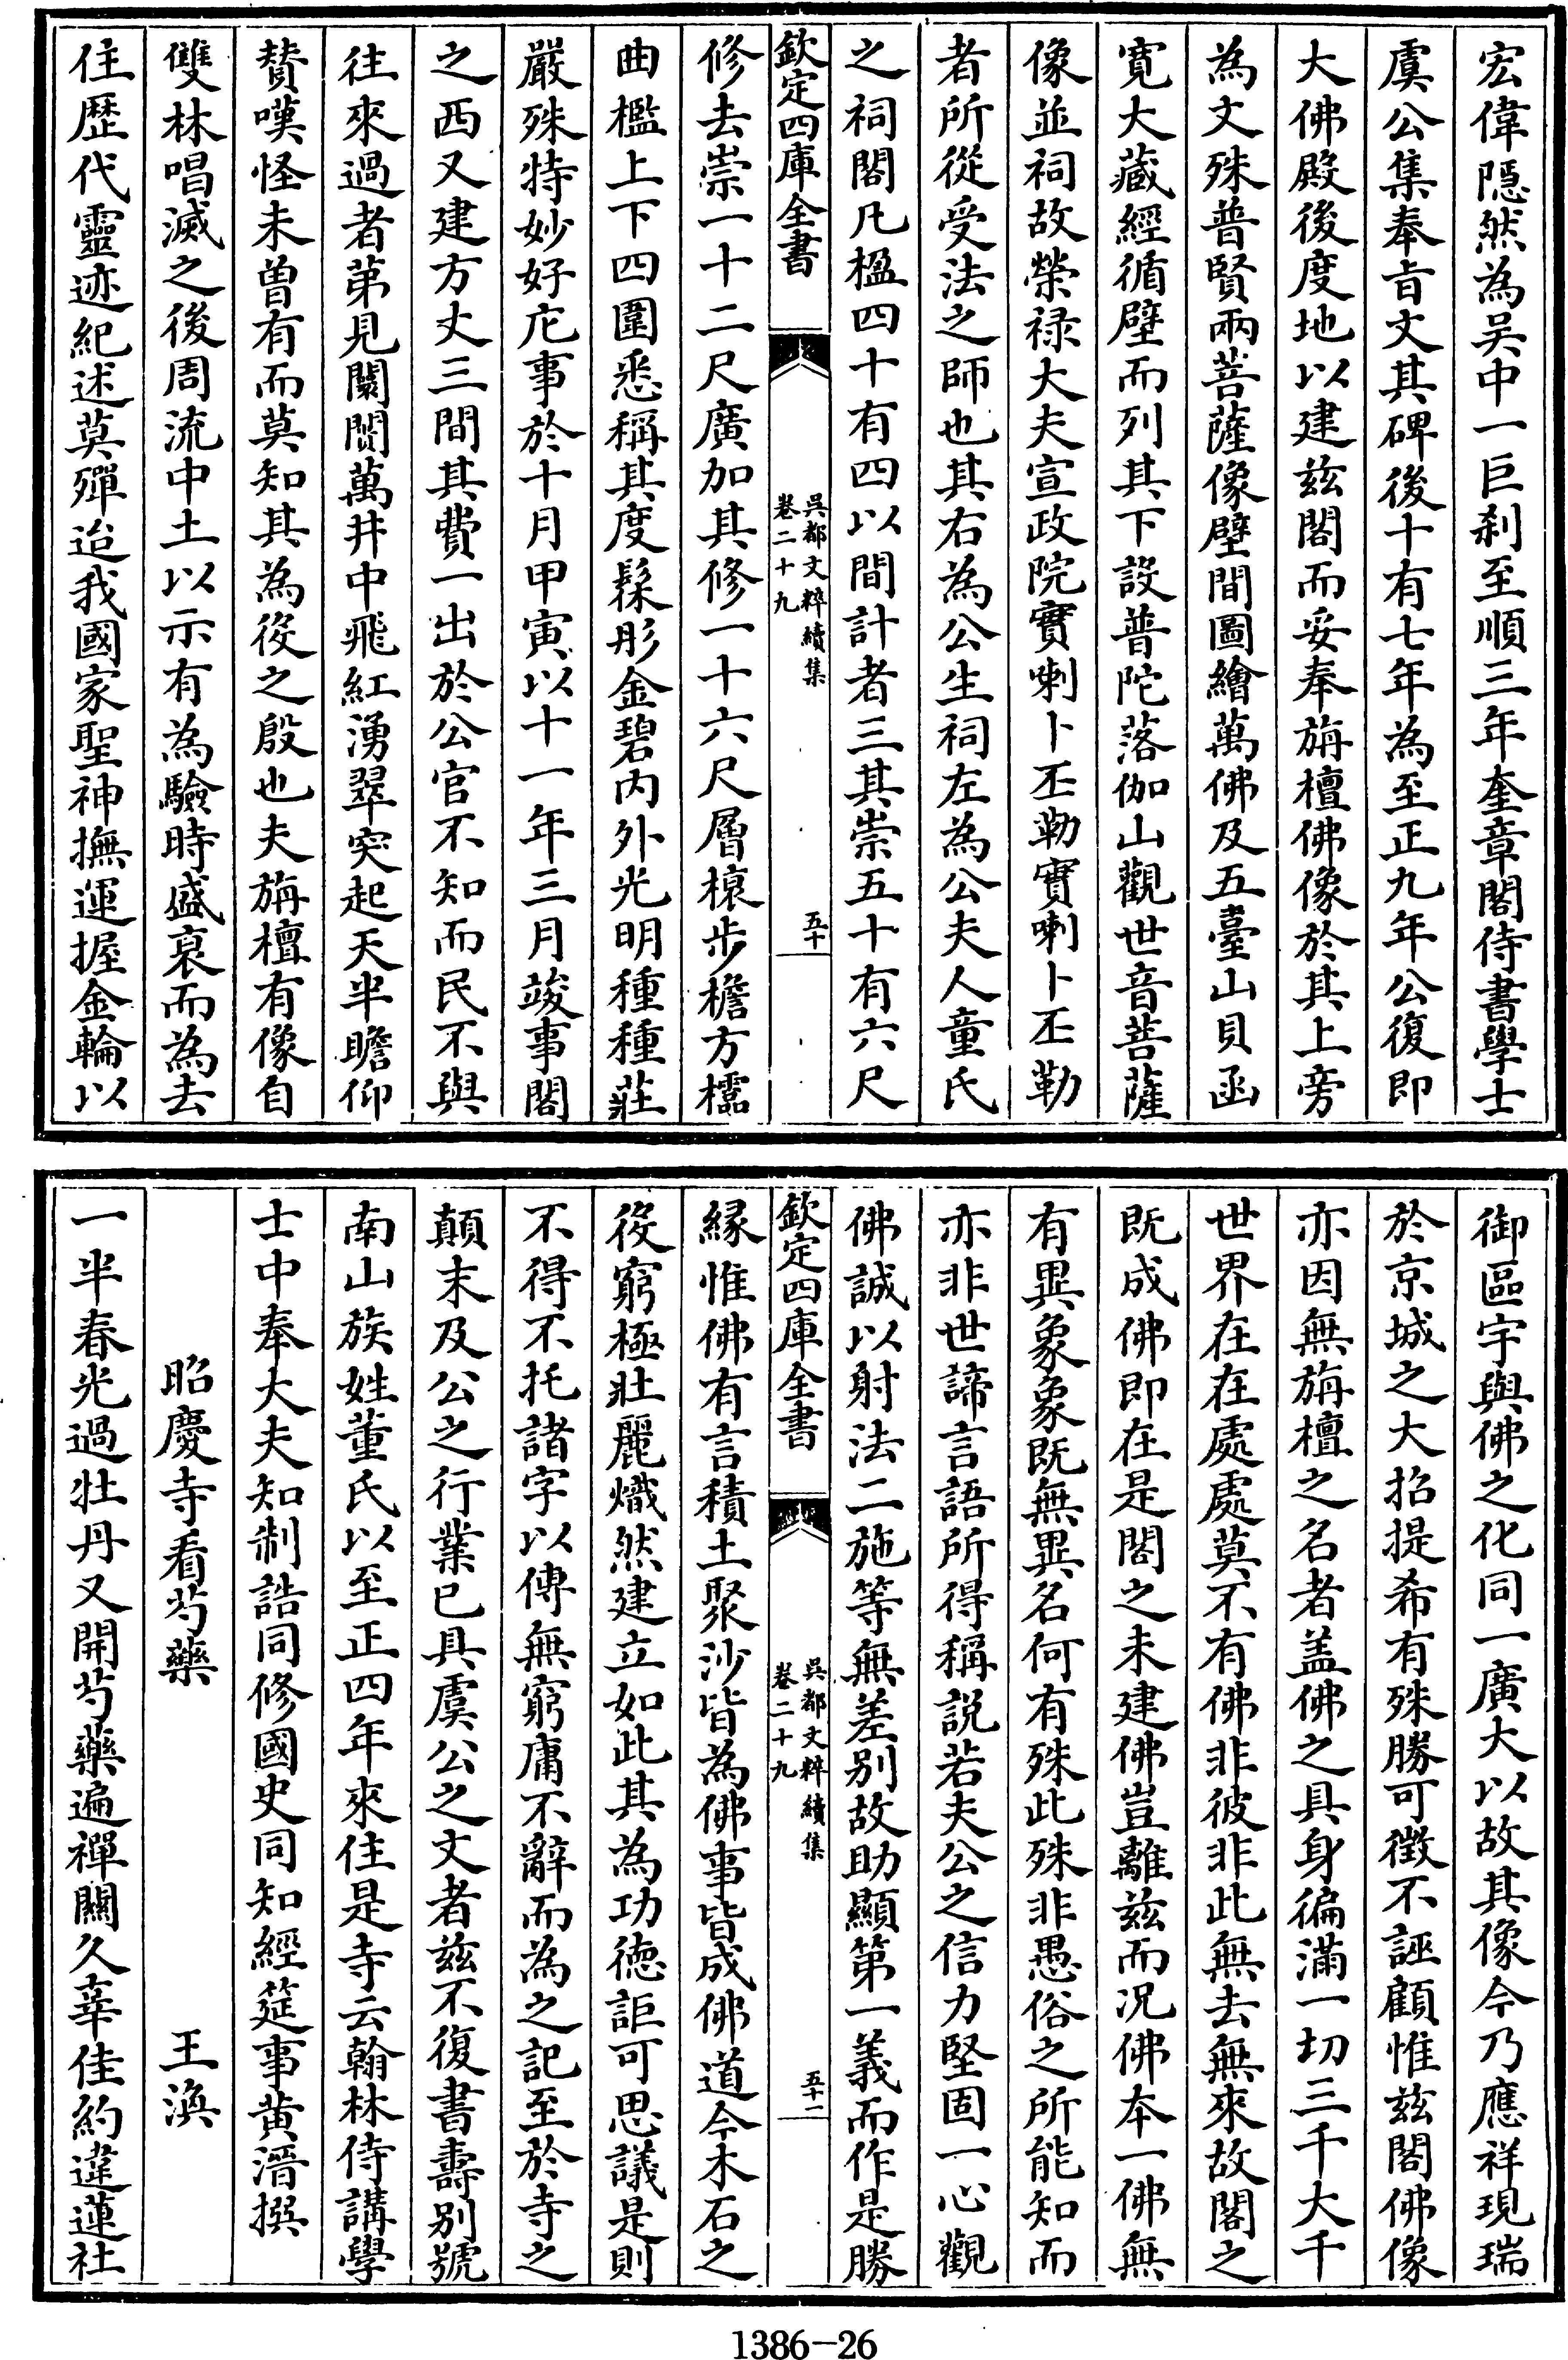 宏偉隱然為吴中一巨刹至順三年奎章閣侍書學士
虞公集奉旨文其碑後十有七年為至正九年公復即
大佛殿後度地以建兹閣而妥奉旃檀佛像於其上旁
為文殊普賢兩菩薩像壁間圖繪萬佛及五臺山貝函
寛大藏經循壁而列其下設普陀落伽山觀世音菩薩
像並祠故榮禄大夫宣政院實喇卜丕勒實喇卜丕勒
者所從受法之師也其右為公生祠左為公夫人童氏
之祠閣凡楹四十有四以間計者三其崇五十有六尺
欽定四庫全書
吳都文粹續集
卷二十九
五十
修去崇一十二尺廣加其修一十六尺層榱步檐方櫺
曲檻上下四圍悉稱其度髹彤金碧内外光明種種莊
嚴殊特妙好庀事於十月甲寅以十一年三月竣事閣
之西又建方丈三間其費一出於公官不知而民不與
往來過者苐見闤闠萬井中飛紅湧翠突起天半瞻仰
賛嘆怪未曾有而莫知其為役之殷也夫旃檀有像自
雙林唱滅之後周流中土以示有為驗時盛衰而為去
住歴代靈迹紀述莫殫迨我國家聖神撫運握金輪以
御區宇與佛之化同一廣大以故其像今乃應祥現瑞
於京城之大招提希有殊勝可徵不誣顧惟兹閣佛像
亦因無旃檀之名者盖佛之具身徧滿一切三千大千
世界在在處處莫不有佛非彼非此無去無來故閣之
既成佛即在是閣之未建佛豈離兹而况佛本一佛無
有異象象既無異名何有殊此殊非愚俗之所能知而
亦非世諦言語所得稱説若夫公之信力堅固一心觀
佛誠以射法二施等無差别故助顯第一義而作是勝
欽定四庫全書
吳都文粹續集
卷二十九
五十一
縁惟佛有言積土聚沙皆為佛事皆成佛道今木石之
役窮極壯麗熾然建立如此其為功徳詎可思議是則
不得不托諸字以傳無窮庸不辭而為之記至於寺之
顛末及公之行業已具虞公之文者兹不復書壽别號
南山族姓董氏以至正四年來住是寺云翰林侍講學
士中奉大夫知制誥同修國史同知經筵事黄溍撰
昭慶寺看芍藥
王渙
一半春光過牡丹又開芍藥遍禪關久辜佳約違蓮社
1386-26